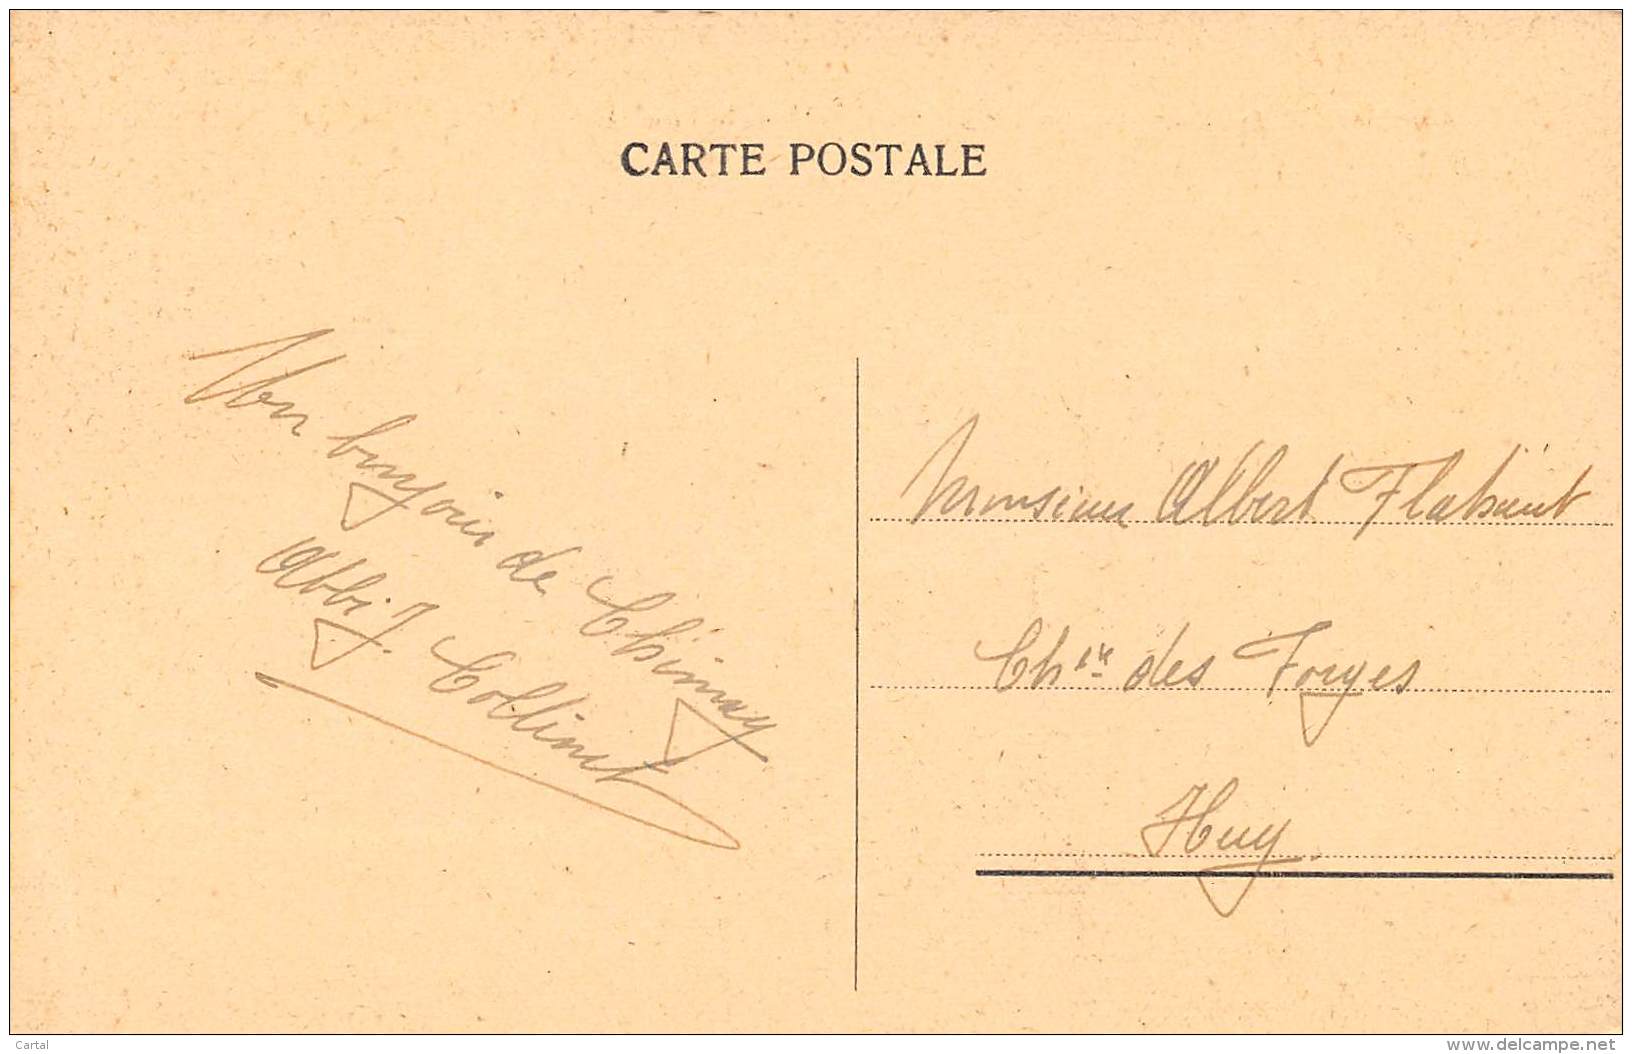 CARTE POSTALE
Un bonjour de Chimay
Abbé J. Collinet
Monsieur Albert Flahaut
Ch. des Forges
Huy.
Cartal
www.delcampe.net